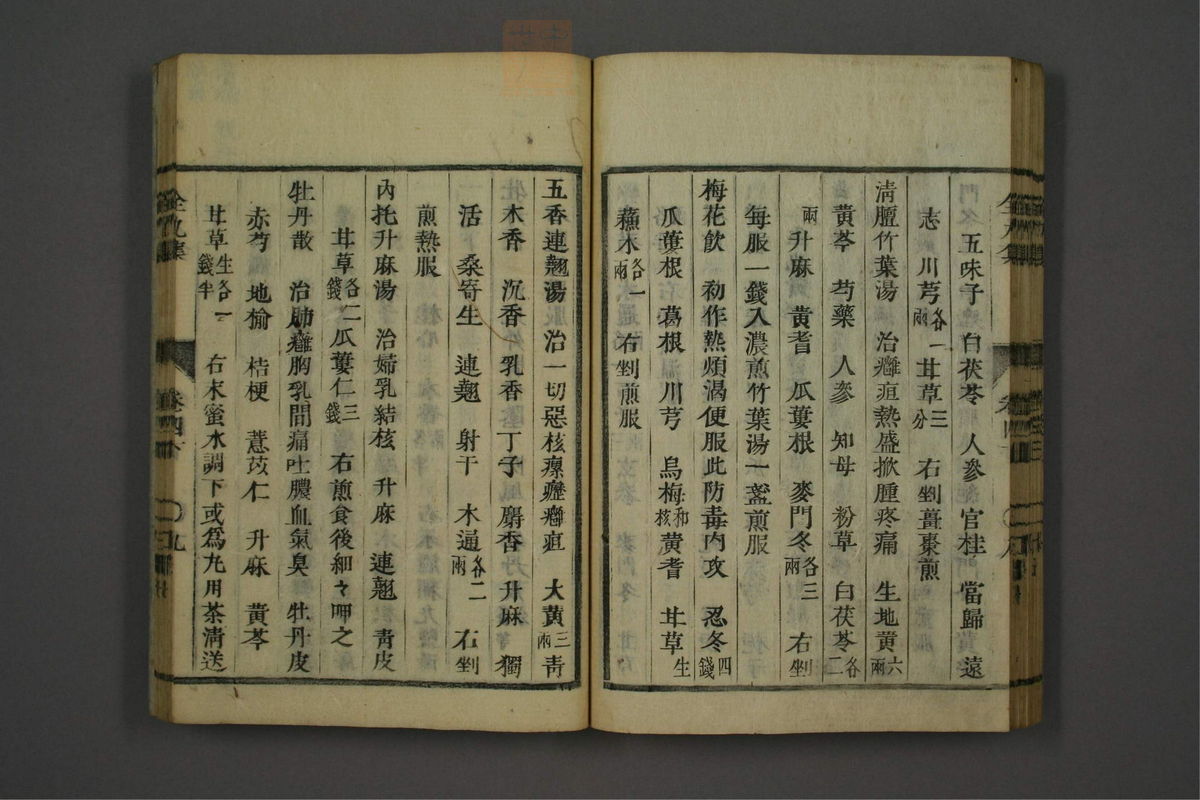 五味子　白茯苓　人參　官桂　當歸　遠
志　川芎各一兩　甘草三分　右剉薑棗煎
淸膻竹葉湯　治癰疽熱盛掀腫疼痛　生地黃六兩
黃芩　芍藥　人參　知母　粉草　白茯苓各二
兩　升麻　黃耆　瓜蔞根　麥門冬各三兩　右剉
每服一錢入濃煎竹葉湯一盞煎服
梅花飲　初作熱煩渴便服此防毒內攻　忍冬四錢
瓜蔞根　葛根　川芎　烏梅和核　黃耆　甘草生
蘇木各一兩　右剉煎服
五香連翹湯　治一切惡核瘰癧癰疽　大黃三兩　靑
木香　沉香　乳香　丁子　麝香　升麻　獨
活　桑寄生　連翹　射干　木通各二兩　右剉
煎熱服
內托升麻湯　治婦乳結核　升麻　連翹　靑皮
甘草各二錢　瓜蔞仁三錢　右煎食後細々呷之
牡丹散　治肺癰胸乳間痛吐膿血氣臭　牡丹皮
赤芍　地榆　桔梗　薏苡仁　升麻　黃芩
甘草生各一錢半　右末蜜水調下或爲丸用茶淸送
卷四下
九